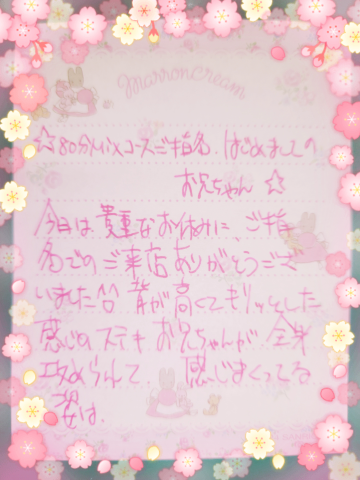 Marroncream
☆80分Mixコースご指名、はじめましての
お兄ちゃん☆
今日は貴重なお休みに、ご指
名でのご来店ありがとうござ
いました 背が高くてキリッとした
感じのステキお兄ちゃんが、全身
攻められて、感じまくってる
姿は、